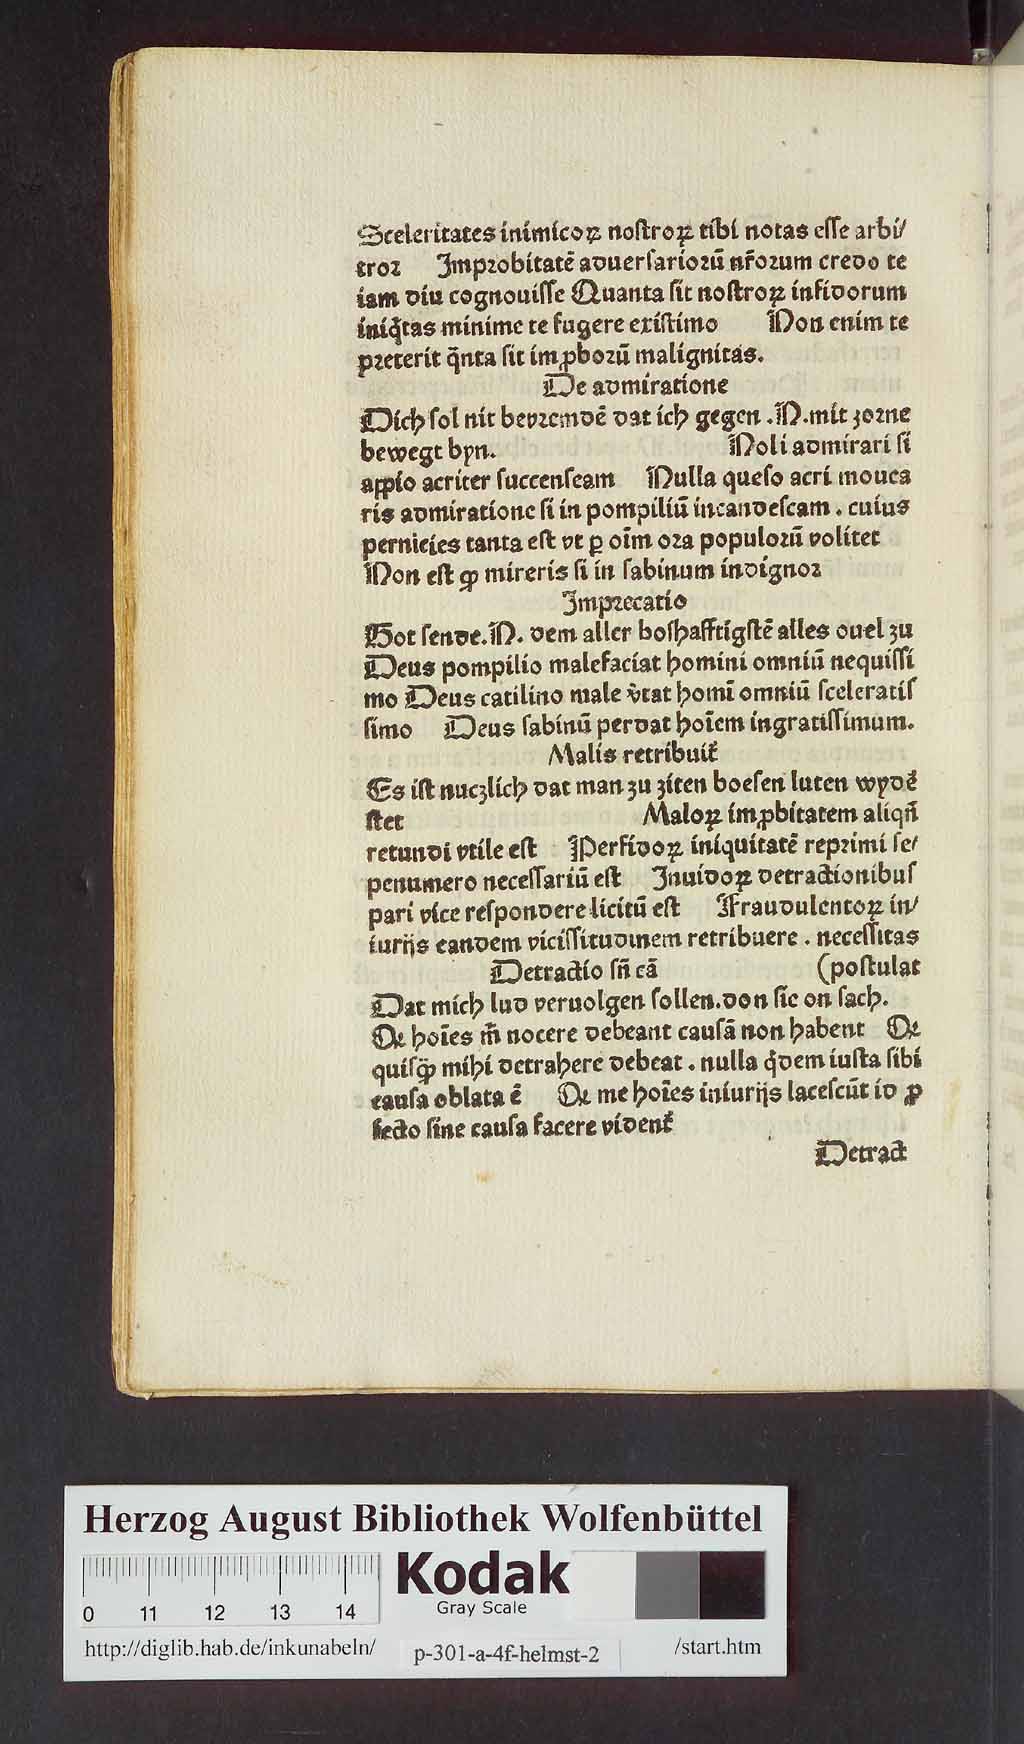 Sceleritates inimicoꝝ nostroꝝ tibi notas esse arbi/
troꝛ Improbitatē aduersarioꝛū nr̄oꝛum credo te
iam diu cognouisse Quanta sit nostroꝝ infidorum
iniq̄tas minime te fugere existimo Non enim te
preterit q̄nta sit imꝓboꝛū malignitas.
De admiratione
Dich sol nit beuremdē dat ich gegen .N. mit zorne
bewegt byn. Noli admirari si
appio acriter succenseam Nulla queso acri mouea
ris admiratione si in pompiliū incandescam . cuius
pernicies tanta est vt ꝑ oīm oꝛa populoꝛū volitet
Non est ꝙ mireris si in sabinum indignoꝛ
Imprecatio
Got sende .N. dem aller boshafftigstē alles ouel zu
Deus pompilio malefaciat homini omniū nequissi
mo Deus catilino male v̄tat homī omniū sceleratis
simo Deus sabinū perdat hoīem ingratissimum.
Malis retribuit̄
Es ist nuczlich dat man zu ziten boesen luten wydē
stet Maloꝝ imꝓbitatem aliqn̄
retundi vtile est Perfidoꝝ iniquitatē reprimi se/
penumero necessariū est Inuidoꝝ detractionibus
pari vice respondere licitū est Fraudulentoꝝ in/
iurijs eandem vicissitudinem retribuere . necessitas
Detractio sn̄ cā (postulat
Dat mich lud veruolgen sollen. von sic on sach.
Qꝛ hoīes m̄ nocere debeant causā non habent Qꝛ
quisꝙ mihi detrahere debeat . nulla q̄dem iusta sibi
causa oblata ē Qꝛ me hoīes iniurijs lacescūt id ꝓ
fecto sine causa facere vident̄
Detract
Herzog August Bibliothek Wolfenbüttel
Kodak
Gray Scale
0 11 12 13 14
http://diglib.hab.de/inkunabeln/ p-301-a-4f-helmst-2 /start.htm